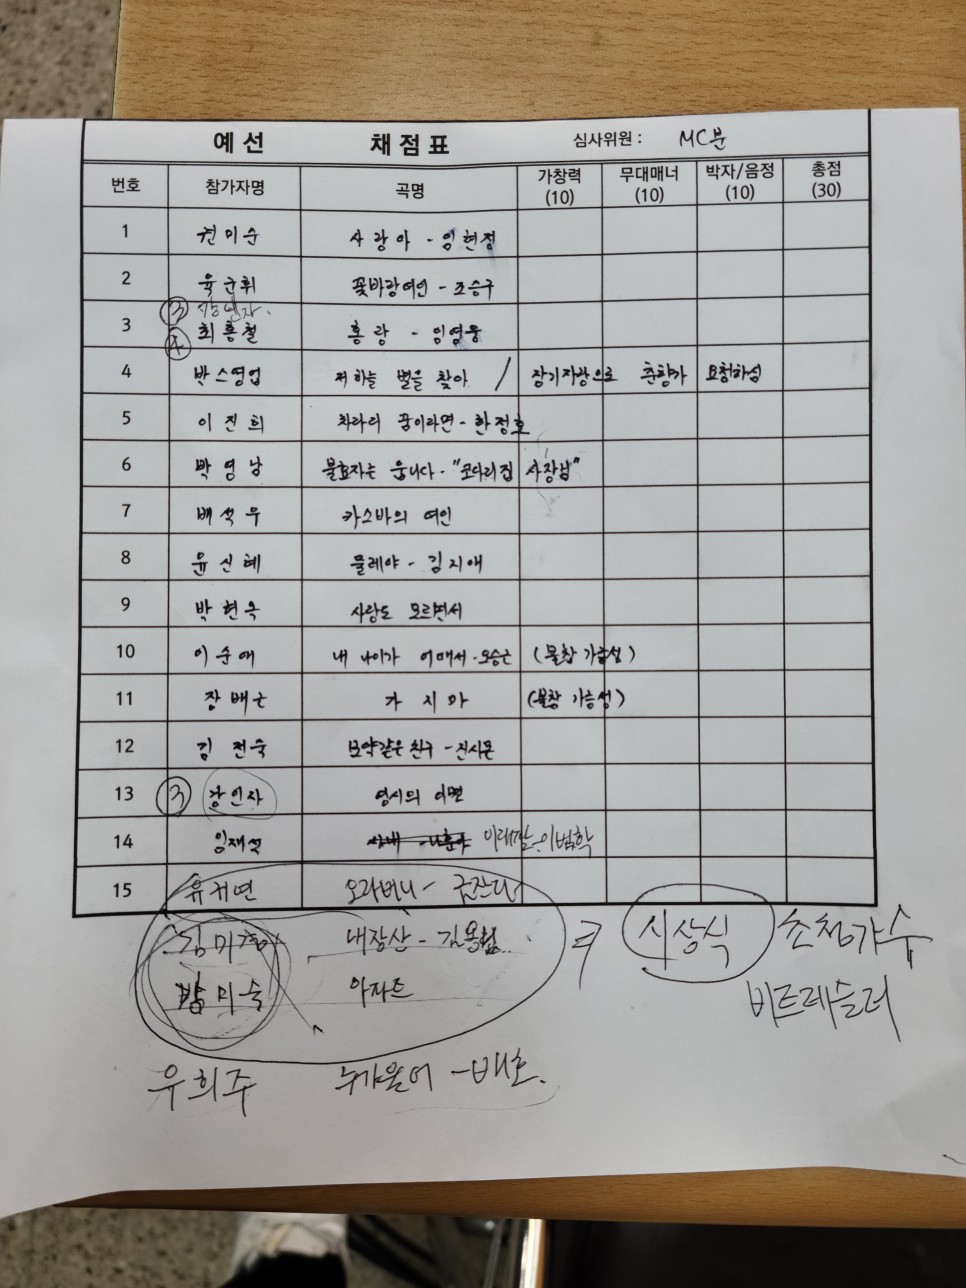 예선 채점표 심사위원 : MC분
번호 참가자명 곡명 가창력 (10) 무대매너 (10) 박자/음정 (10) 총점 (30)
1 권미순 사랑아 - 임현정
2 육군휘 꽃바람여인 - 조승구
③
3 최흥철 홍랑 - 임영웅
④
4 박스영업 저하늘 별을 찾아 / 장기자랑으로 춘향가 요청하심
5 이진희 차라리 꿈이라면 - 한정호
6 박영남 불효자는 웁니다 - "코다리집 사장님"
7 배석우 카스바의 여인
8 윤신혜 물레야 - 김지애
9 박현옥 사랑도 모르면서
10 이순애 내 나이가 어때서 - 오승근 (불참 가능성)
11 장배근 가지마 (불참 가능성)
12 김전숙 보약같은 친구 - 진시몬
13 ③ 장인자 영시의 이별
14 임재석 이범학
15 유지연 오라버니 - 금잔디
김미정 내장산 - 김용림 ⇒ 시상식 초청가수
박미숙 아파트 비트레슬러
우희주 누가울어 - 배호